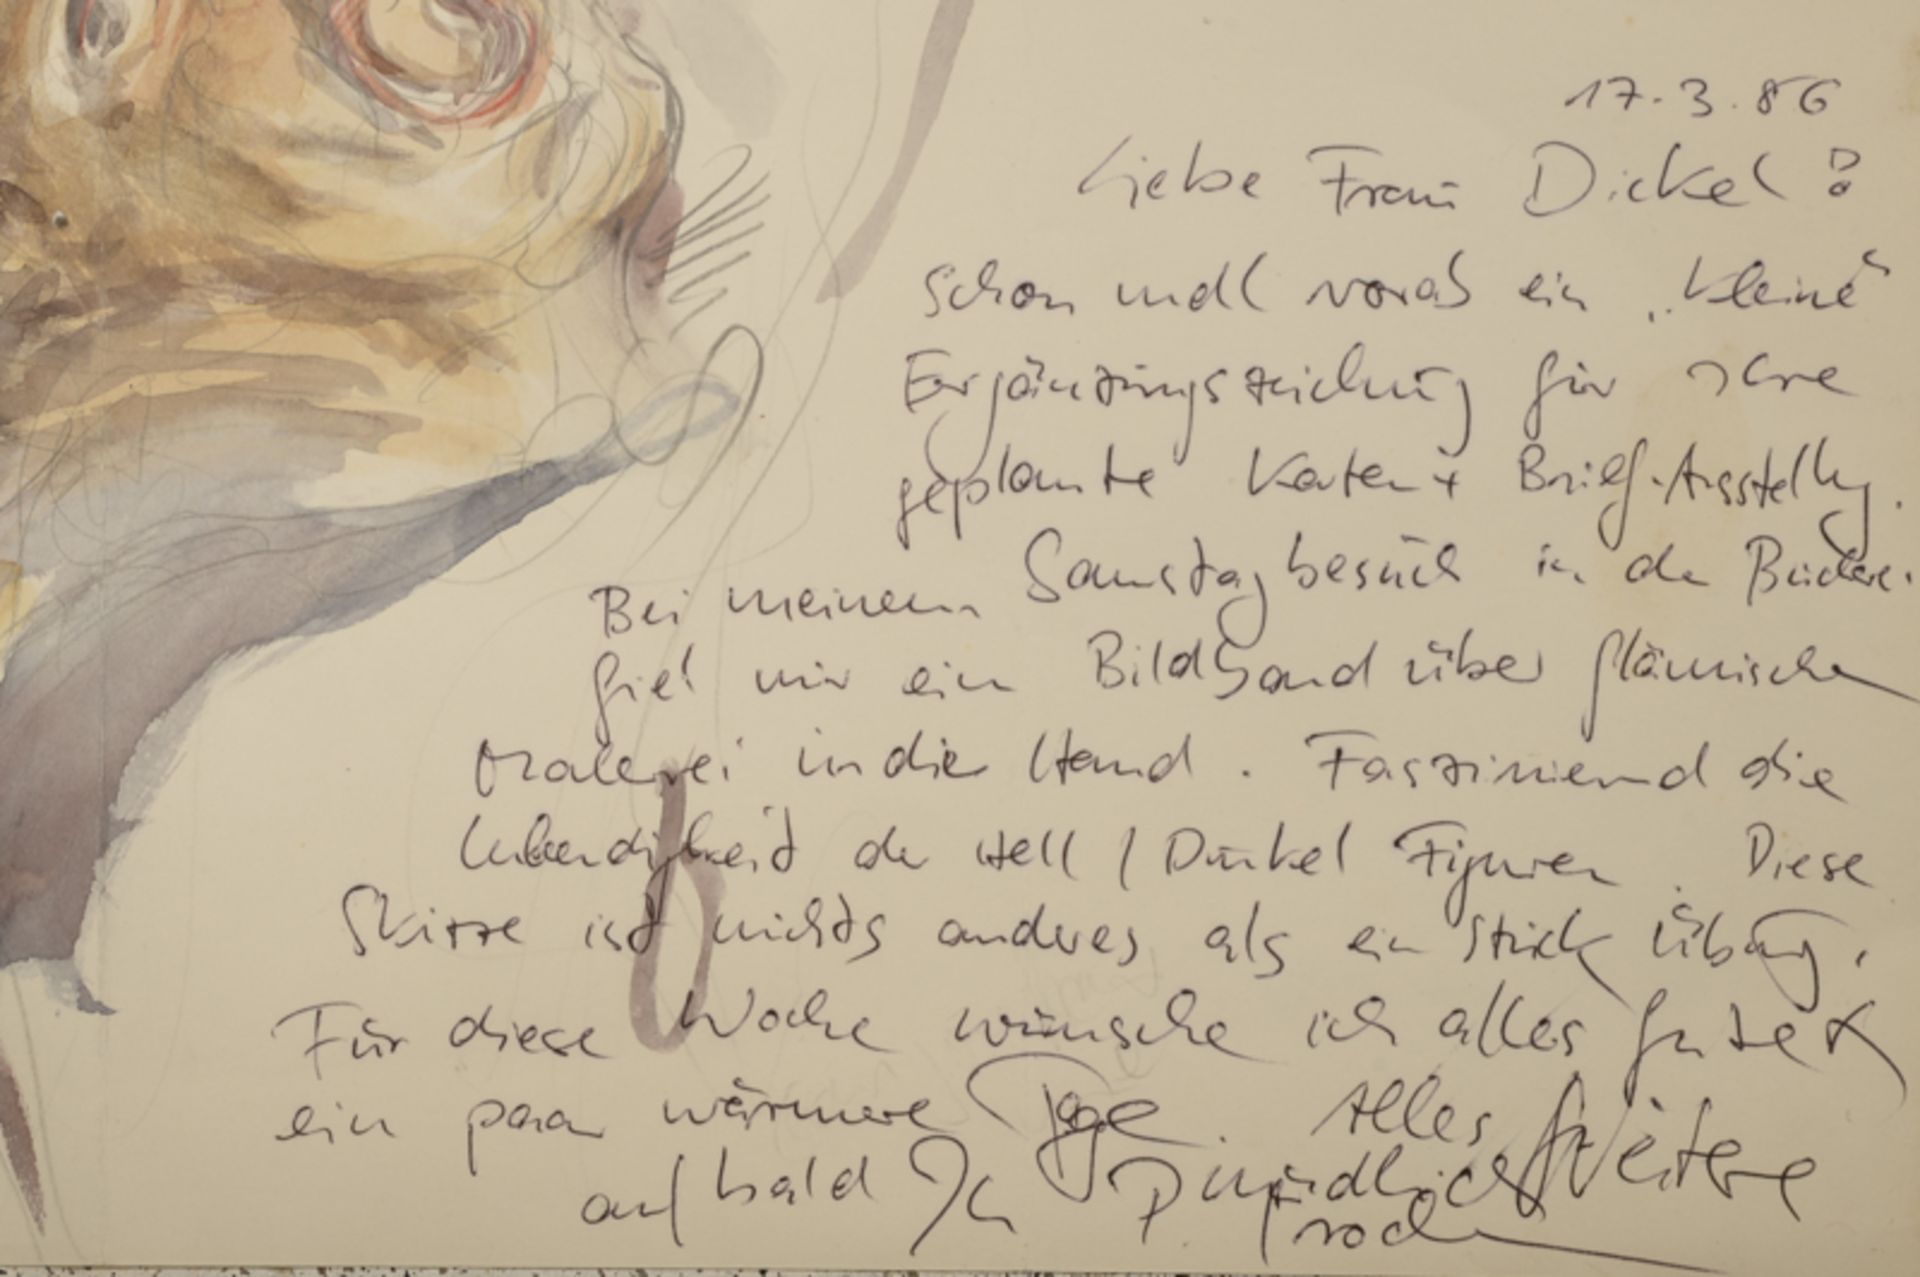 17.3.86
Liebe Frau Dickel!
Schon mal vorab ein „kleine“
Ergänzungszeichnung für Ihre
geplante Karten + Brief-Ausstellg.
Bei meinem Samstagbesuch in der Bücherei.
fiel mir ein Bildband über flämische
Malerei in die Hand. Faszinierend die
Lebendigkeit der Hell / Dunkel Figuren. Diese
Skizze ist nichts anderes als ein Stück Übung.
Für diese Woche wünsche ich alles Gute +
ein paar wärmere Tage. Alles Weitere
auf bald Ihr P. mündlich